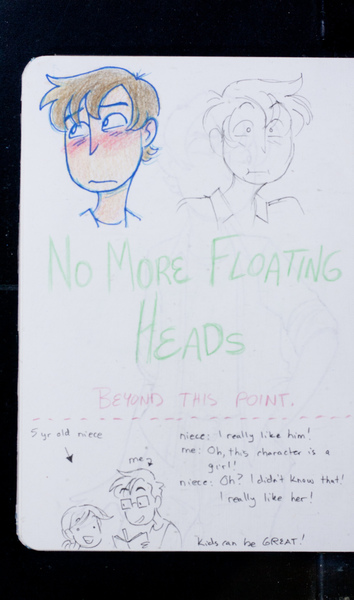 No More Floating
Heads
Beyond this point.
5 yr old niece
me?
niece: I really like him!
me: Oh, this character is a
girl!
niece: Oh? I didn't know that!
I really like her!
Kids can be GREAT!